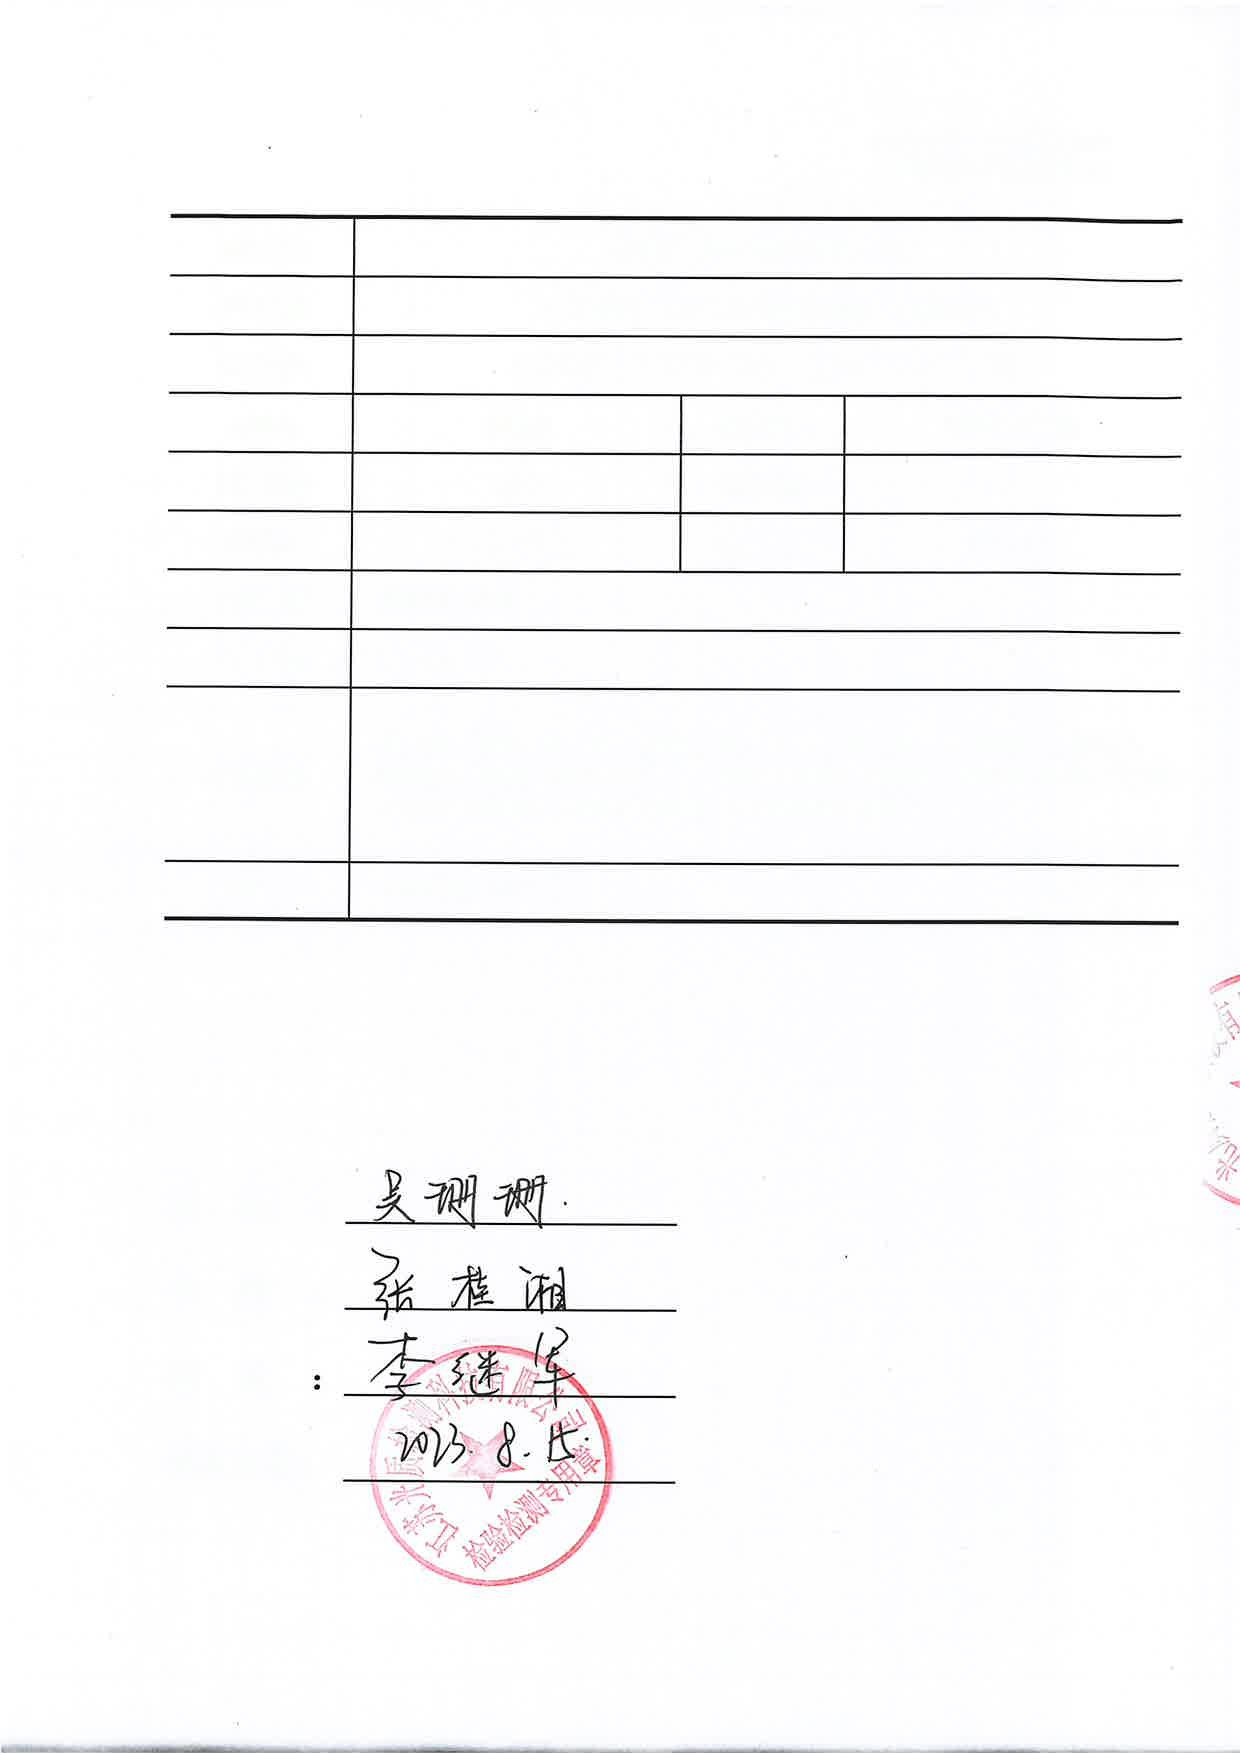 吴珊珊.
张桂湘
: 李继军
2023.8.15.
江苏光质检测科技有限公司
检验检测专用章